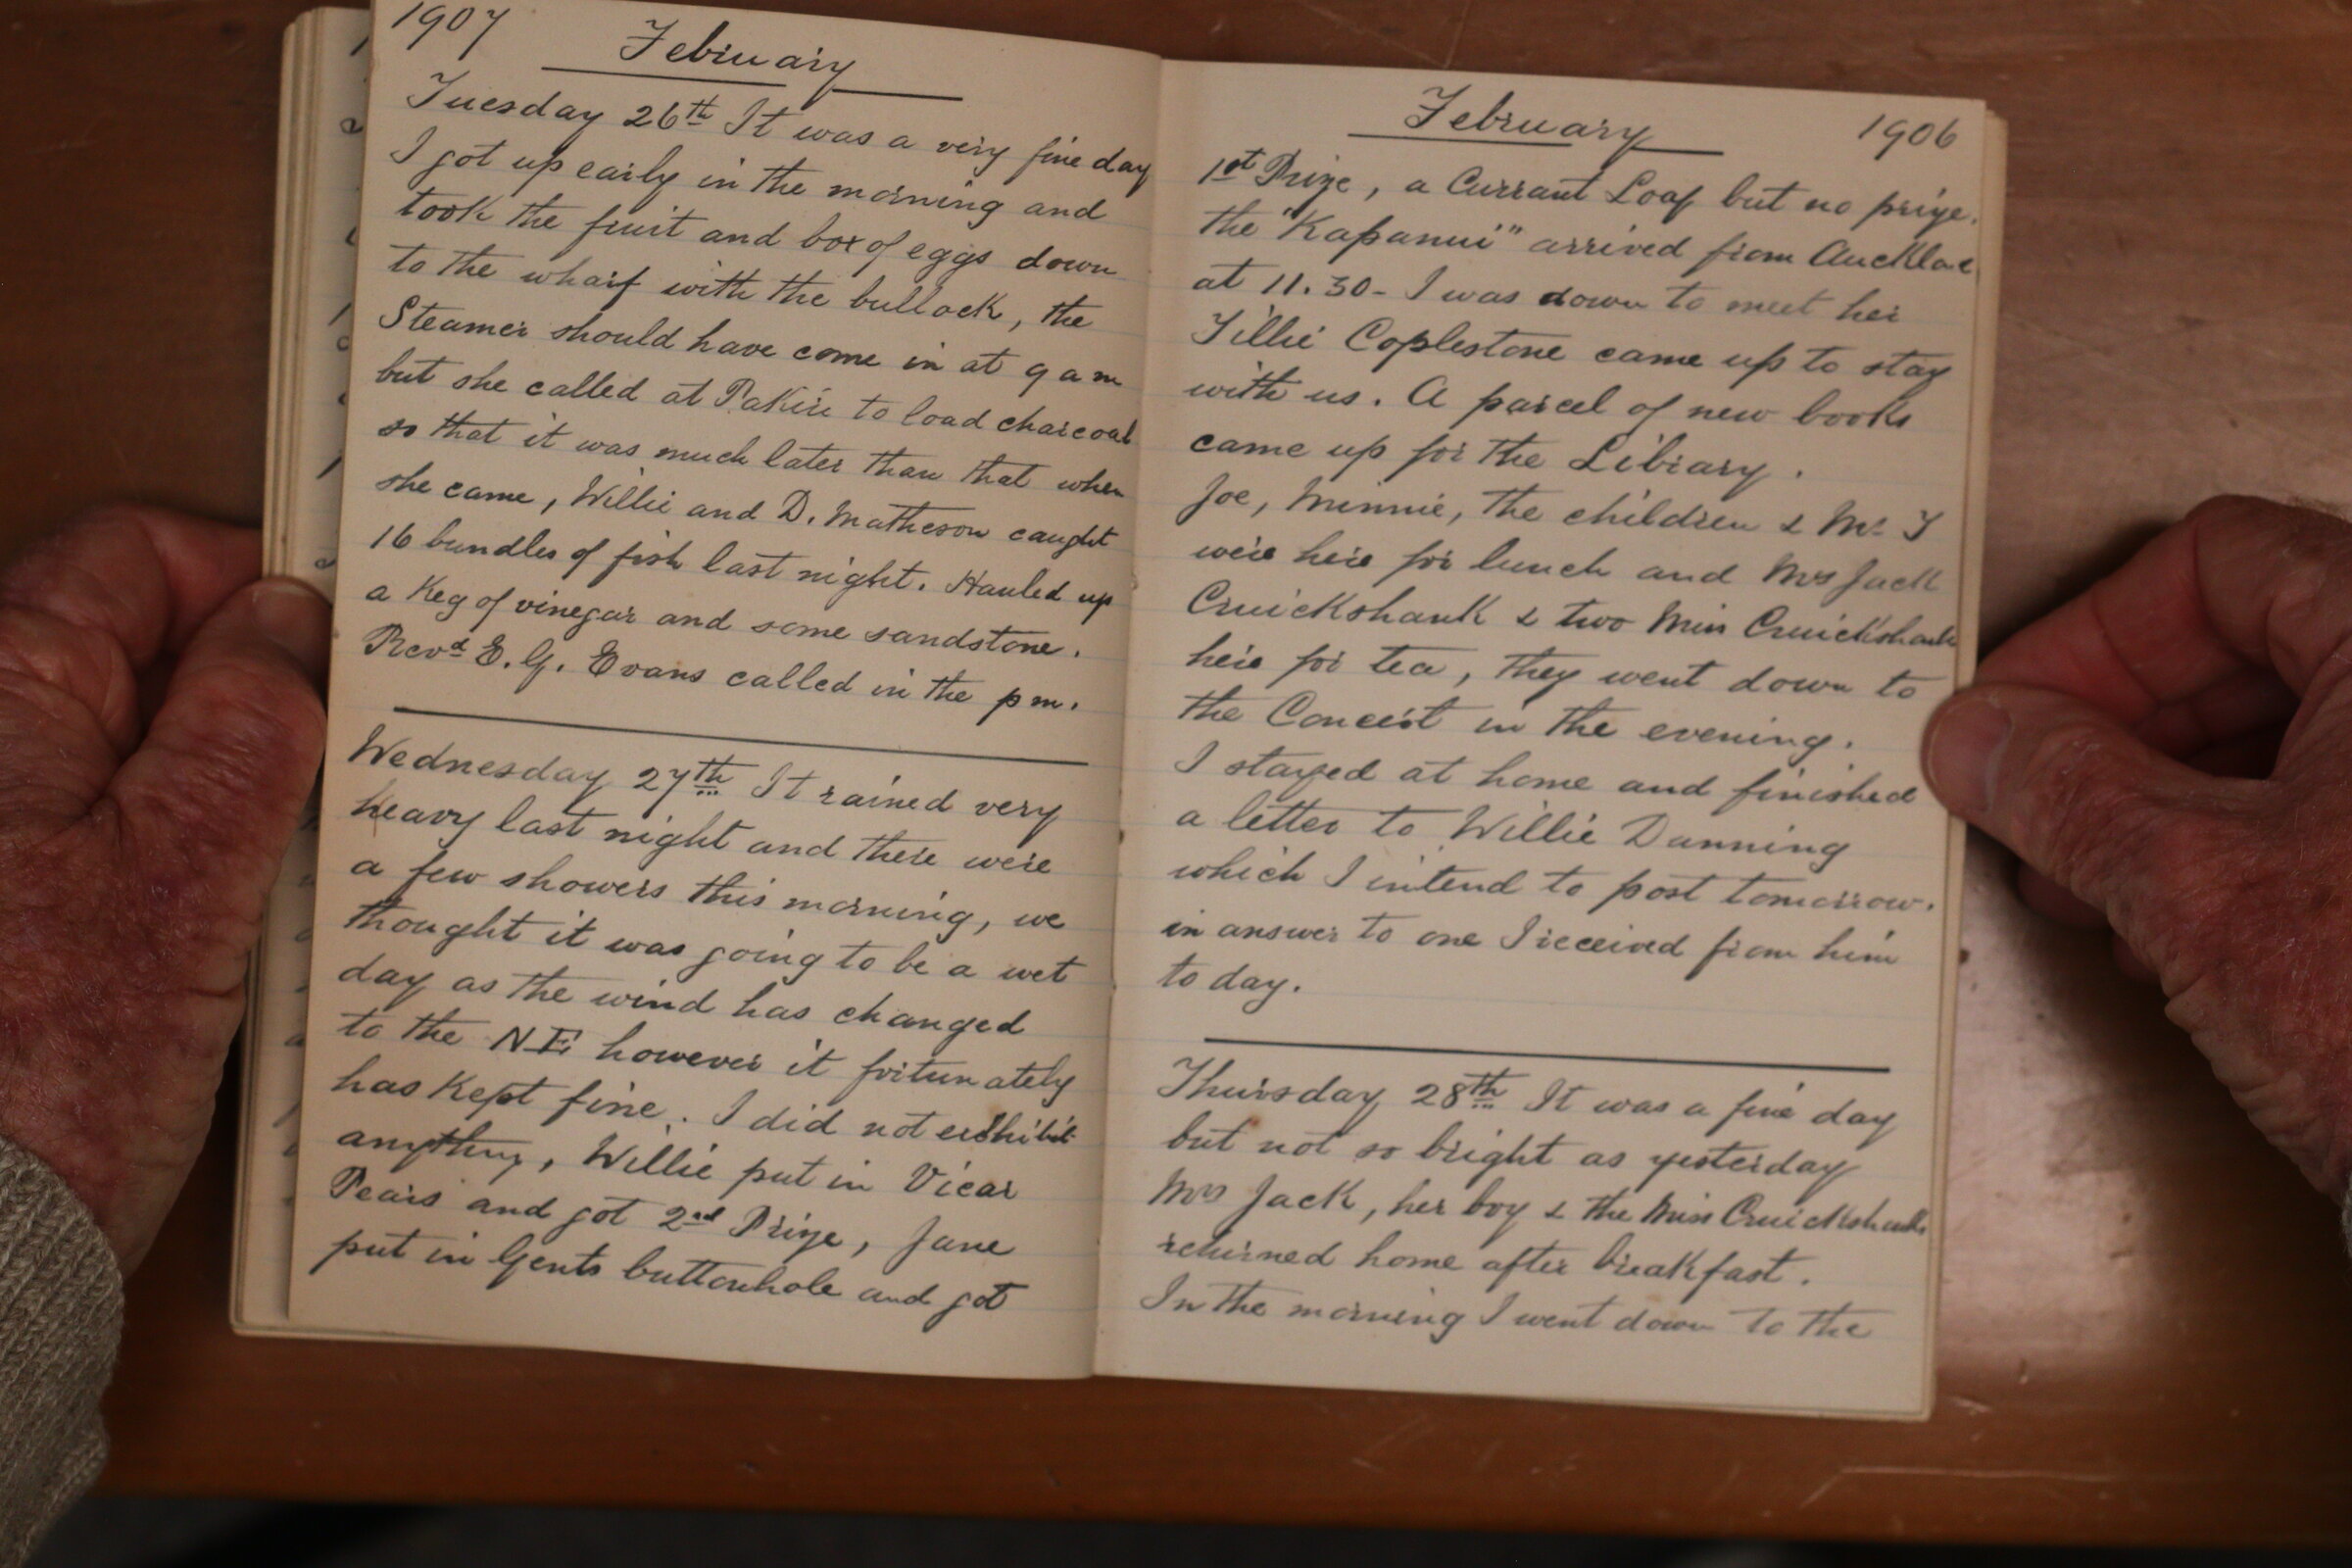 1907
February
Tuesday 26th It was a very fine day
I got up early in the morning and
took the fruit and box of eggs down
to the wharf with the bullock, the
Steamer should have come in at 9 am
but she called at Pakiri to load charcoal
so that it was much later than that when
she came, Willie and D. Matheson caught
16 bundles of fish last night. Hauled up
a Keg of vinegar and some sandstone.
Revd E. G. Evans called in the pm.
Wednesday 27th It rained very
heavy last night and there were
a few showers this morning, we
thought it was going to be a wet
day as the wind has changed
to the NE however it fortunately
has Kept fine. I did not exhibit
anything, Willie put in Vicar
Pears and got 2nd Prize, Jane
put in Gents buttonhole and got
February
1906
1st Prize, a Currant Loaf but no prize.
the "Kapanui" arrived from
at 11.30 - I was down to meet her
Tillie Coplestone came up to stay
with us. A parcel of new books
came up for the Library.
Joe, Minnie, the children & Mr T
were here for lunch and Mrs Jack
Cruickshank & two Miss Cruickshank
here for tea, they went down to
the Concert in the evening.
I stayed at home and finished
a letter to Willie Dunning
which I intend to post tomorrow.
in answer to one I received from him
to day.
Thursday 28th It was a fine day
but not so bright as yesterday
Mrs Jack, her boy & the Miss Cruickshank
returned home after breakfast.
In the morning I went down to the